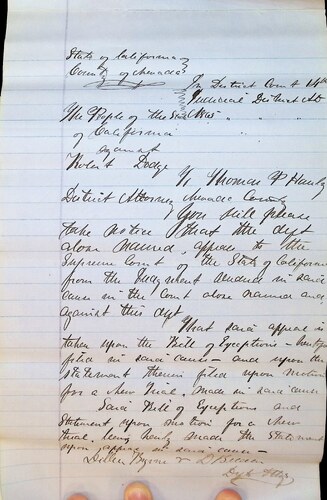 State of California
County of Nevada
In District Court 14th
Judicial District
The People of the State
of California
against
Robert Dodge
To Thomas P Hawley
District Attorney Nevada County
You will please
take notice that the deft
above named, appeals to the
Supreme Court of the State of California
from the Judgment rendered in said
cause in the Court above named and
against this deft
That said appeal is
taken upon the Bill of Exceptions
filed in said cause – and upon the
statement therein filed upon motion
for a New Trial, made in said cause
Said Bill of Exceptions and
Statement upon motion for a New
trial, being hereby made the Statement
upon appeal in said cause –
Byrne &
Defts Attys